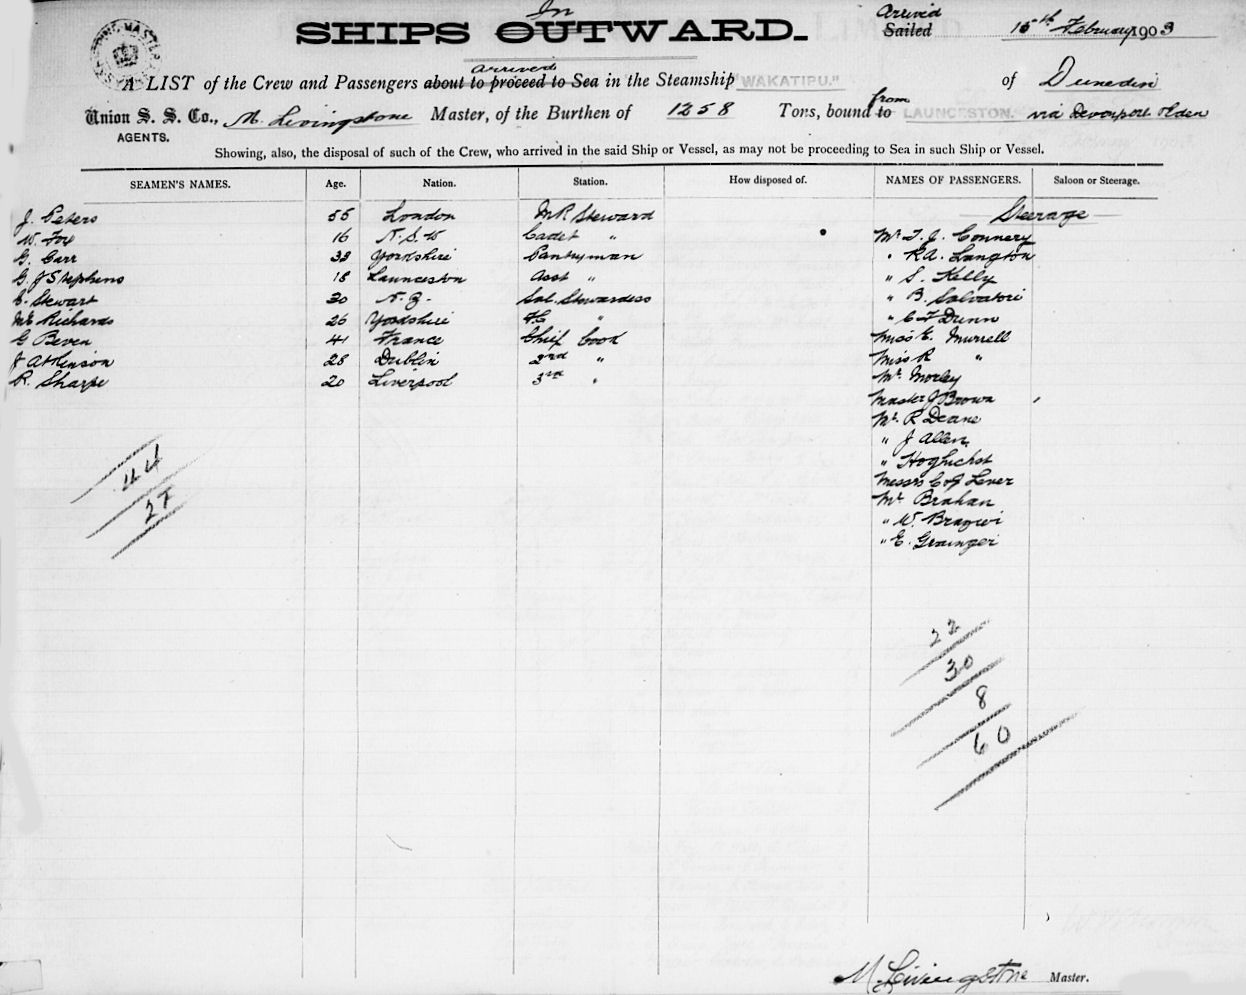 In Arrived
SHIPS OUTWARD. Sailed 15th February 1903
arrived
A LIST of the Crew and Passengers about to proceed to Sea in the Steamship "WAKATIPU." of Dunedin
from
Union S. S. Co., M. Livingstone Master, of the Burthen of 1258 Tons, bound to LAUNCESTON. via Devonport & Eden
AGENTS.
Showing, also, the disposal of such of the Crew, who arrived in the said Ship or Vessel, as may not be proceeding to Sea in such Ship or Vessel.
SEAMEN'S NAMES. Age. Nation. Station. How disposed of. NAMES OF PASSENGERS. Saloon or Steerage.
J. Peters 55 London Steward Steerage
W. Fox 16 N.S.W Cadet " Mr T. J. Connery
G. Carr 38 Yorkshire Pantryman " R A. Langton
G J Stephens 18 Launceston Asst " " S. Kelly
E. Stewart 30 N.Z. Sal. Stewardess " B. Salvatori
Richards 26 Yorkshire " " C F Dunn
G Beven 41 France Chief Cook Miss E. Murrell
J Atkinson 28 Dublin 2nd " Miss R "
R. Sharpe 20 Liverpool 3rd " Mr Morley
Master J Brown
Mr R Deane
" J Allen
"
Messrs C & J Lever
Mr Brahan
" W.
" E. Grainger
44
27
22
30
8
60
M. Livingstone Master.